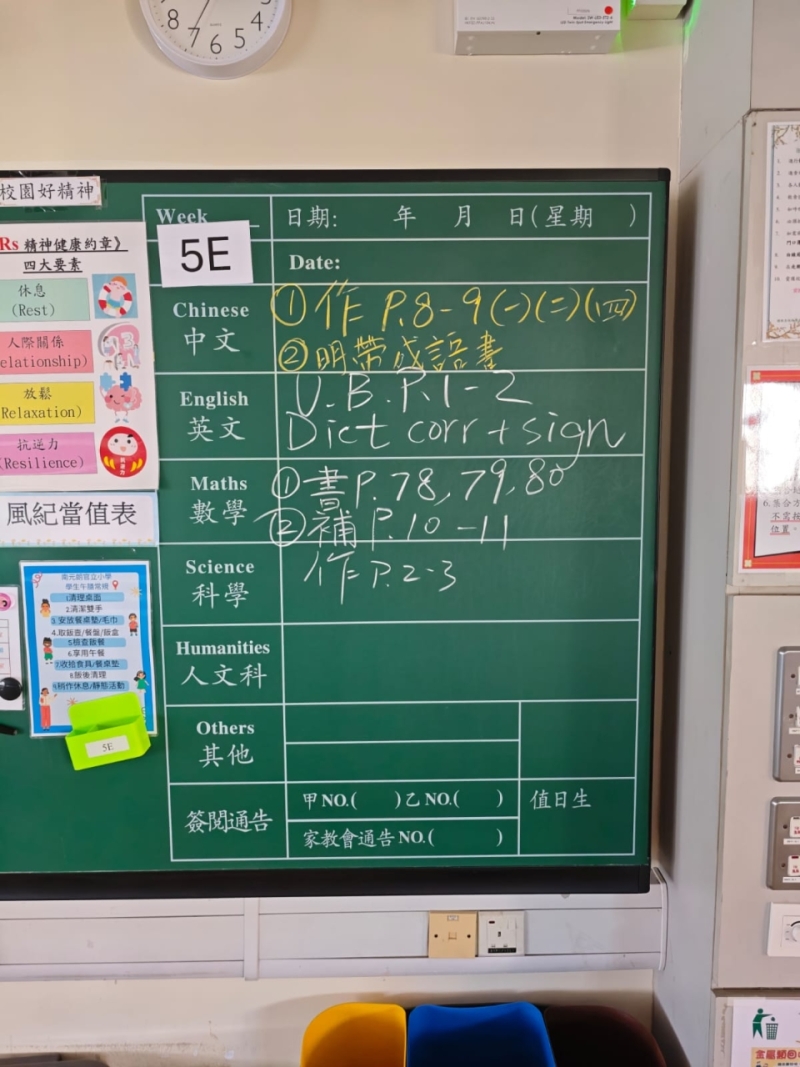 8
7
6
5
4
校園好精神
Rs 精神健康約章》
四大要素
休息
(Rest)
人際關係
elationship)
放鬆
Relaxation)
抗逆力
(Resilience)
風紀當值表
學生午膳常規
1清理桌面
2.清潔雙手
3.安放餐桌墊/毛巾
4.取飯壺/餐盤/飯盒
5檢查飯餐
6.享用午餐
7.收拾食具/餐桌墊
8.飯後清理
9.稍作休息/靜態活動
5E
Week
5E
日期: 年 月 日(星期 )
Date:
Chinese
中文
①作 P.8-9(一)(二)(四)
②明帶成語書
English
英文
U.B. P.1-2
Dict corr + sign
Maths
數學
①書P.78,79,80
②補 P.10-11
Science
科學
作 P.2-3
Humanities
人文科
Others
其他
簽閱通告
甲NO.( )乙NO.( )
家教會通告NO.( )
值日生
6.集合方
不需按
位置。